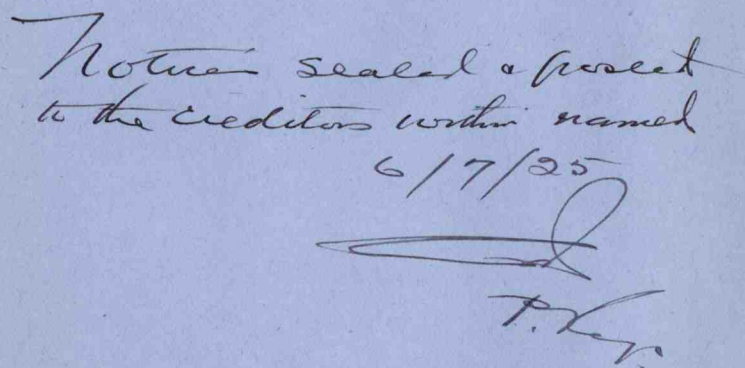 Notices sealed & posted
to the creditors within named
6/7/25